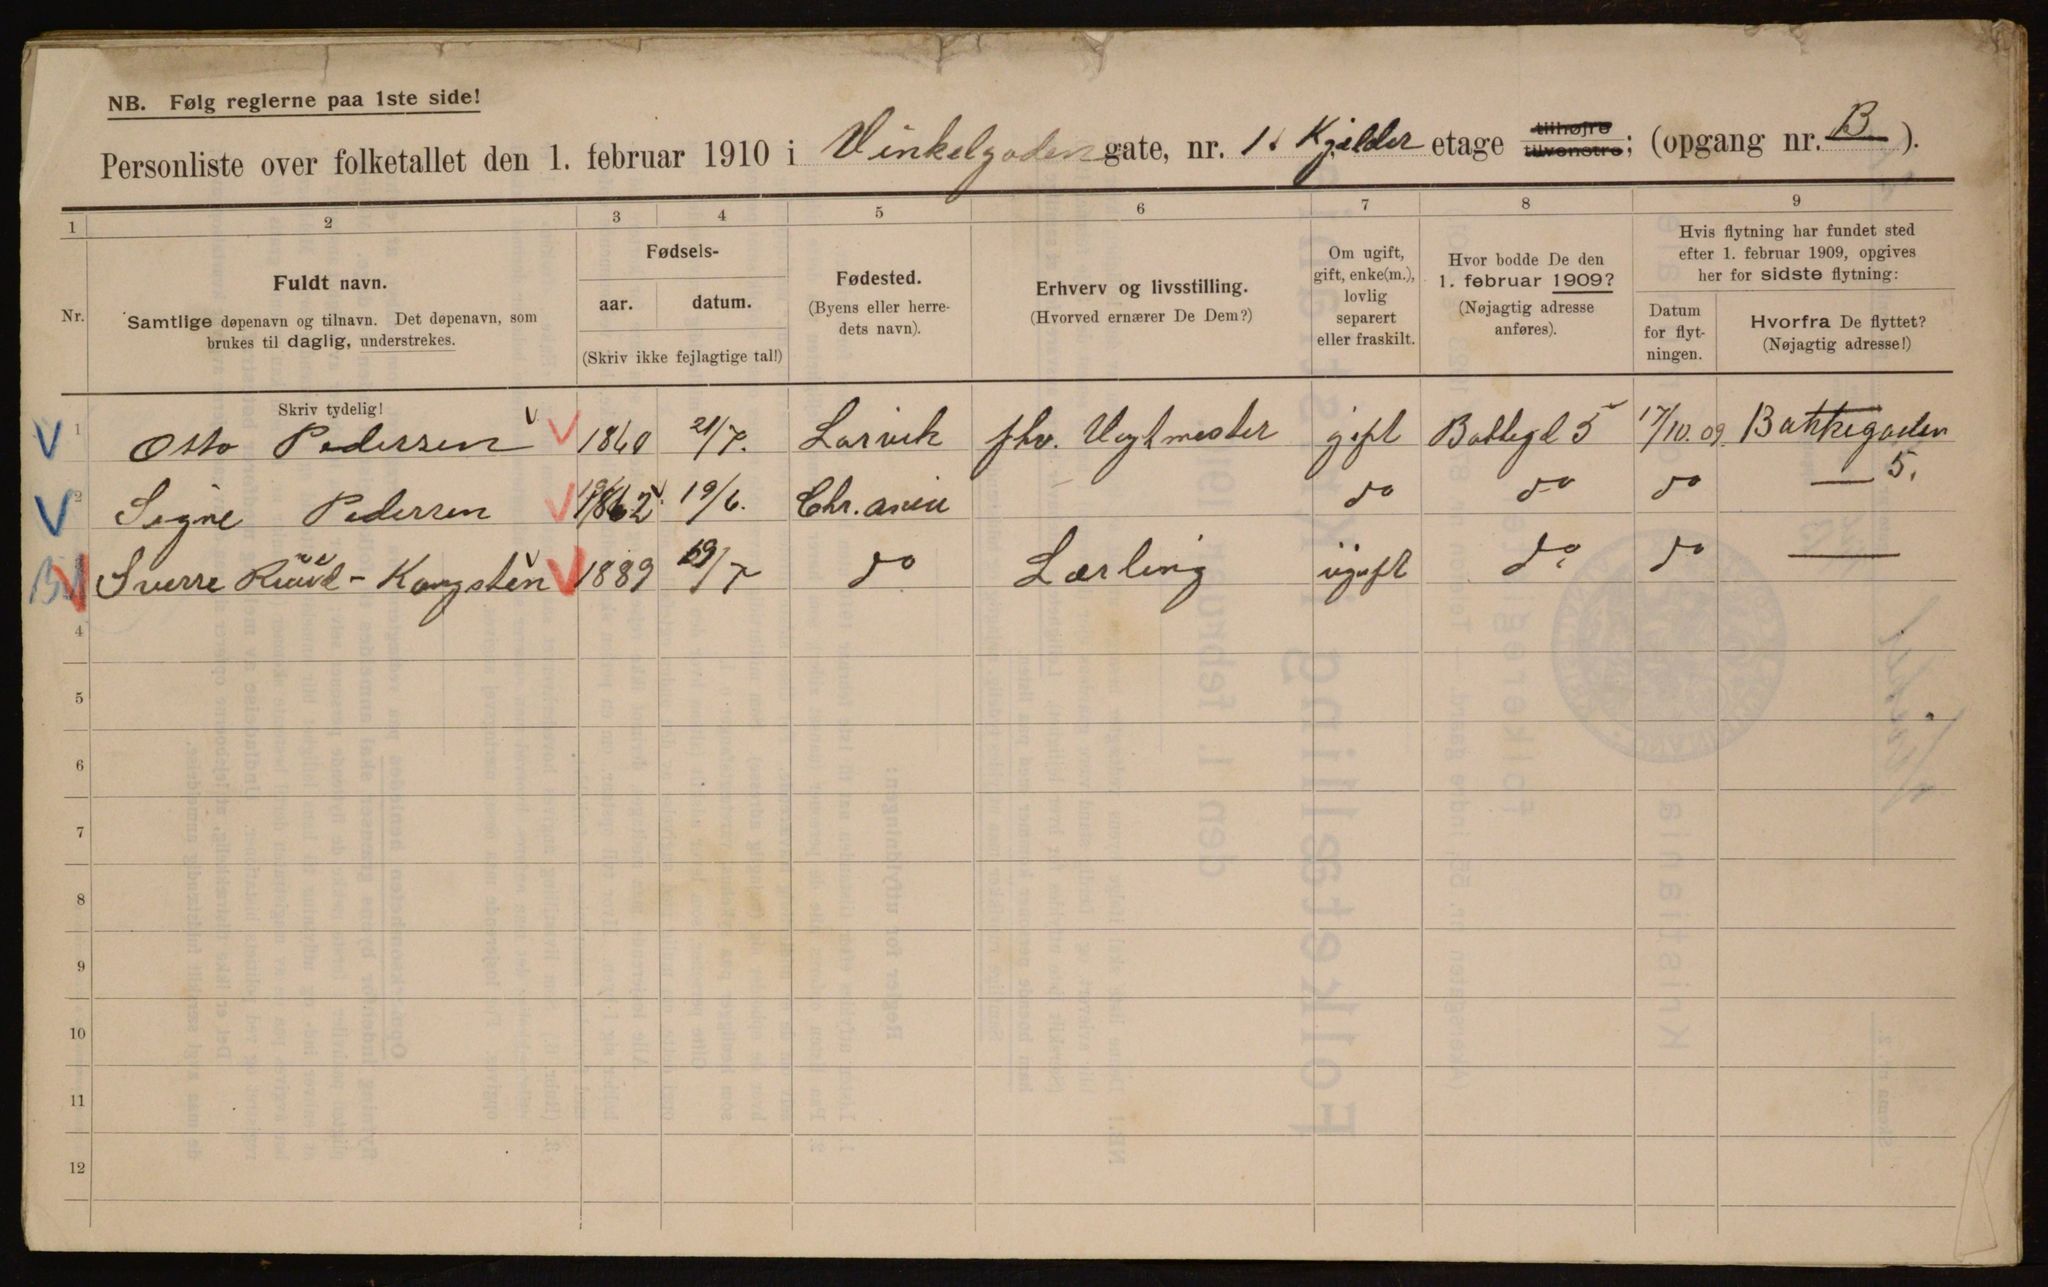 NB. Følg reglerne paa 1ste side!
Personliste over folketallet den 1. februar 1910 i Vinkelgaden gate, nr. 1. Kjelder etage tilhøjre tilvenstre; (opgang nr. B ).
1 2 3 4 5 6 7 8 9
Nr.
Fuldt navn.
Samtlige døpenavn og tilnavn. Det døpenavn, som
brukes til daglig, understrekes.
Fødsels-
aar. datum.
(Skriv ikke fejlagtige tal!)
Fødested.
(Byens eller herre-
dets navn).
Erhverv og livsstilling.
(Hvorved ernærer De Dem?)
Om ugift,
gift, enke(m.),
lovlig
separert
eller fraskilt.
Hvor bodde De den
1. februar 1909?
(Nøjagtig adresse
anføres).
Hvis flytning har fundet sted
efter 1. februar 1909, opgives
her for sidste flytning:
Datum
for flyt-
ningen.
Hvorfra De flyttet?
(Nøjagtig adresse!)
Skriv tydelig!
1 Otto Pedersen 1860 21/7. Larvik fhv. Vagtmester gift Bakkegd 5 17/10.09 Bakkegaden
5.
2 Signe Pedersen 1862 19/6. Chr.ania do do do —
Sverre Ruud - Kongsten 1889 19/7 do Lærling ugift do. do —
4
5
6
7
8
9
10
11
12